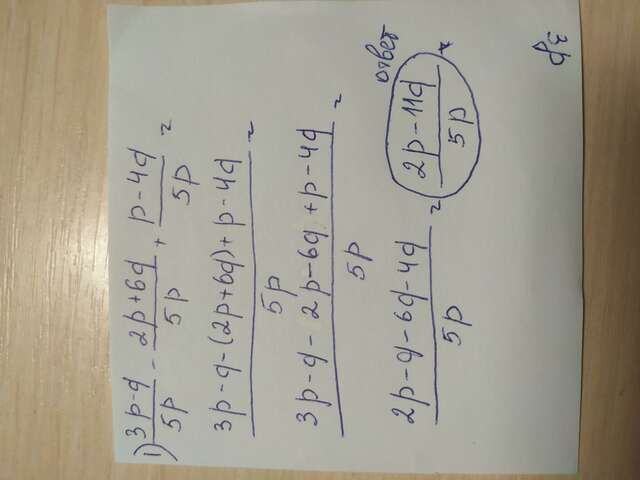 1) (3p-q)/5p - (2p+6q)/5p + (p-4q)/5p =
(3p-q-(2p+6q)+p-4q)/5p =
(3p-q-2p-6q+p-4q)/5p =
(2p-q-6q-4q)/5p = (2p-11q)/5p
ответ